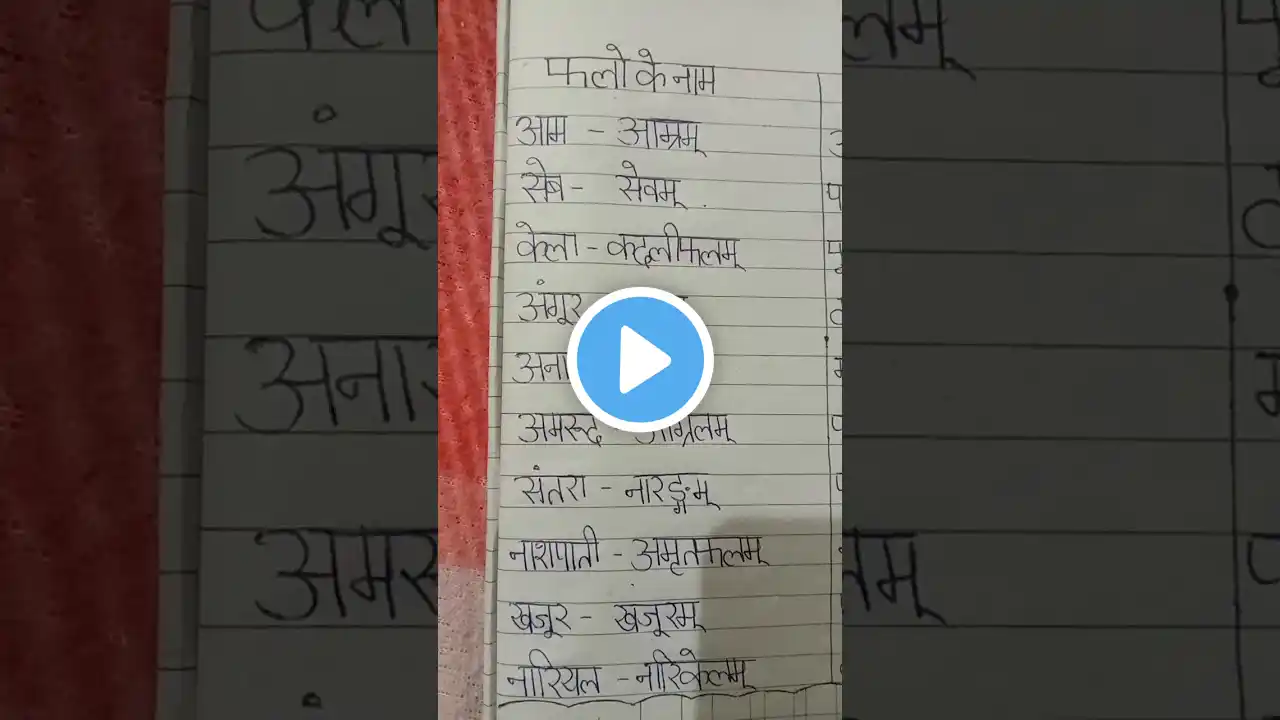 फलो के नाम
आम - आम्रम्
सेब - सेवम्
केला - कदलीफलम्
अंगूर
अना
अमरूद -
संतरा - नारङ्गम्
नाशपाती - अमृतफलम्
खजूर - खंजूरम्
नारियल - नारिकेलम्